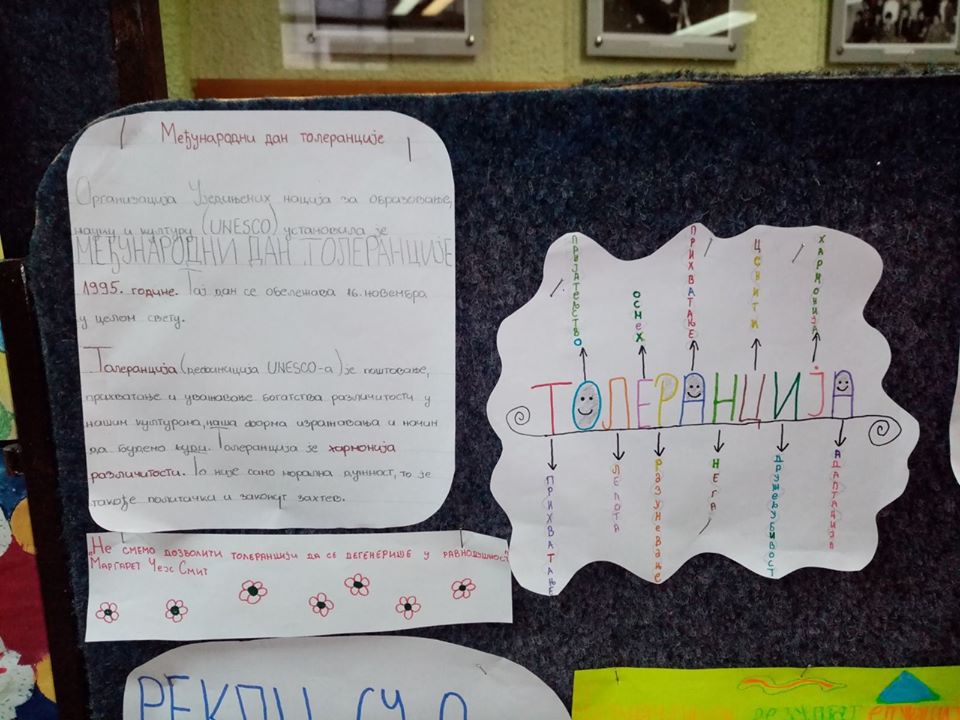 Међународни дан толеранције
Организација Уједињених нација за образовање,
науку и културу (UNESCO) установила је
МЕЂУНАРОДНИ ДАН ТОЛЕРАНЦИЈЕ
1995. године. Тај дан се обележава 16. новембра
у целом свету.
Толеранција (дефиниција UNESCO-а) је поштовање,
прихватање и уважавање богатства различитости у
нашим културама, наша форма изражавања и начин
да будемо људи. Толеранција је хармонија
различитости. То није само морална дужност, то је
такође политички и законит захтев.
„Не смемо дозволити толеранцији да се дегенерише у равнодушност"
Маргарет Чејс Смит
ПРИЈАТЕЉСТВО
ОСМЕХ
ПРИХВАТАЊЕ
ЦЕНИТИ
ХАРМОНИЈА
ТОЛЕРАНЦИЈА
ПРИХВАТАЊЕ
ЛЕПОТА
РАЗУМЕВАЊЕ
НЕГА
ДРУЖЕЉУБИВОСТ
АДАПТАЦИЈА
РЕКЛИ СУ О